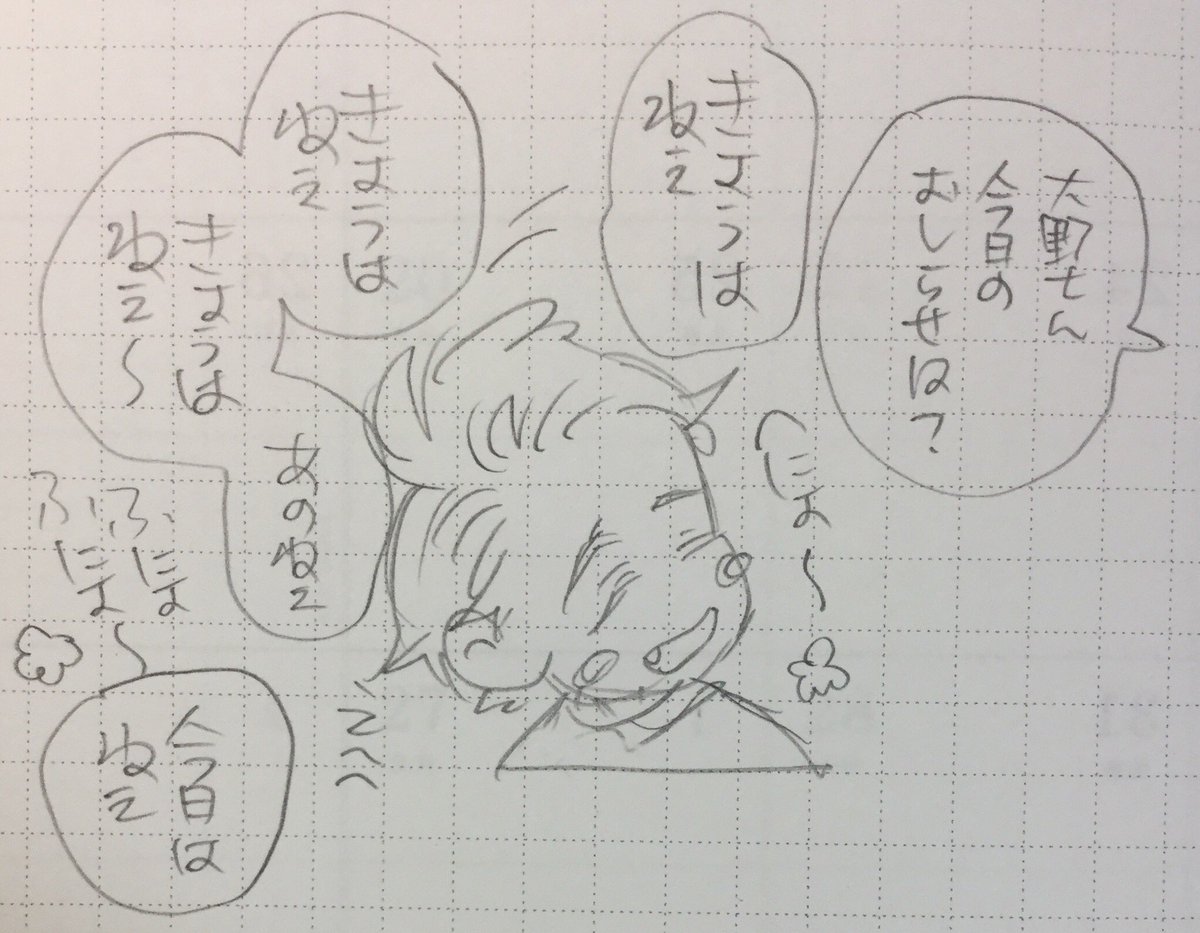 大野さん
今日の
むしらせは?
きょうは
ねえ
にょ〜
きょうは
ねえ
きょうは
ねえ〜
あのねえ
ふにょ
ふにょ〜
今日は
ねえ